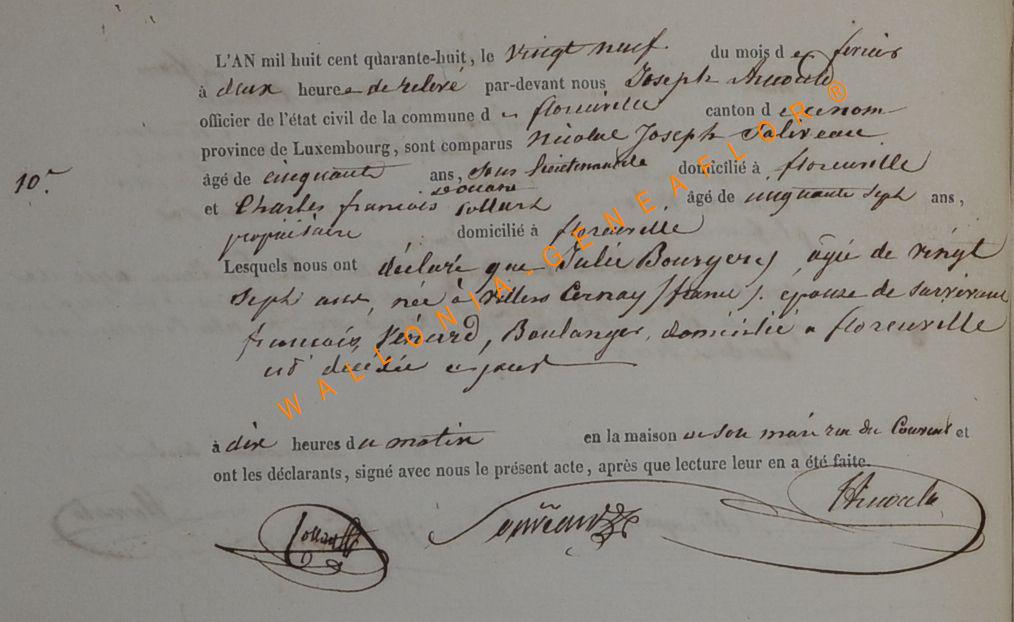 L'AN mil huit cent quarante-huit, le vingt neuf du mois de fevrier
à deux heures de relevé par-devant nous Joseph Arnould
officier de l'état civil de la commune de florenville canton de ce nom
province de Luxembourg, sont comparus Nicolas Joseph
10.
âgé de cinquante ans, Sous Lieutenant de domicilié à florenville
Douane
et Charles francois Collard âgé de cinquante sept ans,
propriétaire domicilié à florenville
Lesquels nous ont déclaré que Julie Bourgery agée de vingt
Sept ans, née à Villers Cernay (france), épouse de Survivant
francois Périard, Boulanger, domicilié a florenville
est décédée ce jour
à dix heures du matin en la maison de son mari rue du Couvent et
ont les déclarants, signé avec nous le présent acte, après que lecture leur en a été faite.
Collard
WALLONIA-GENEAFLOR®